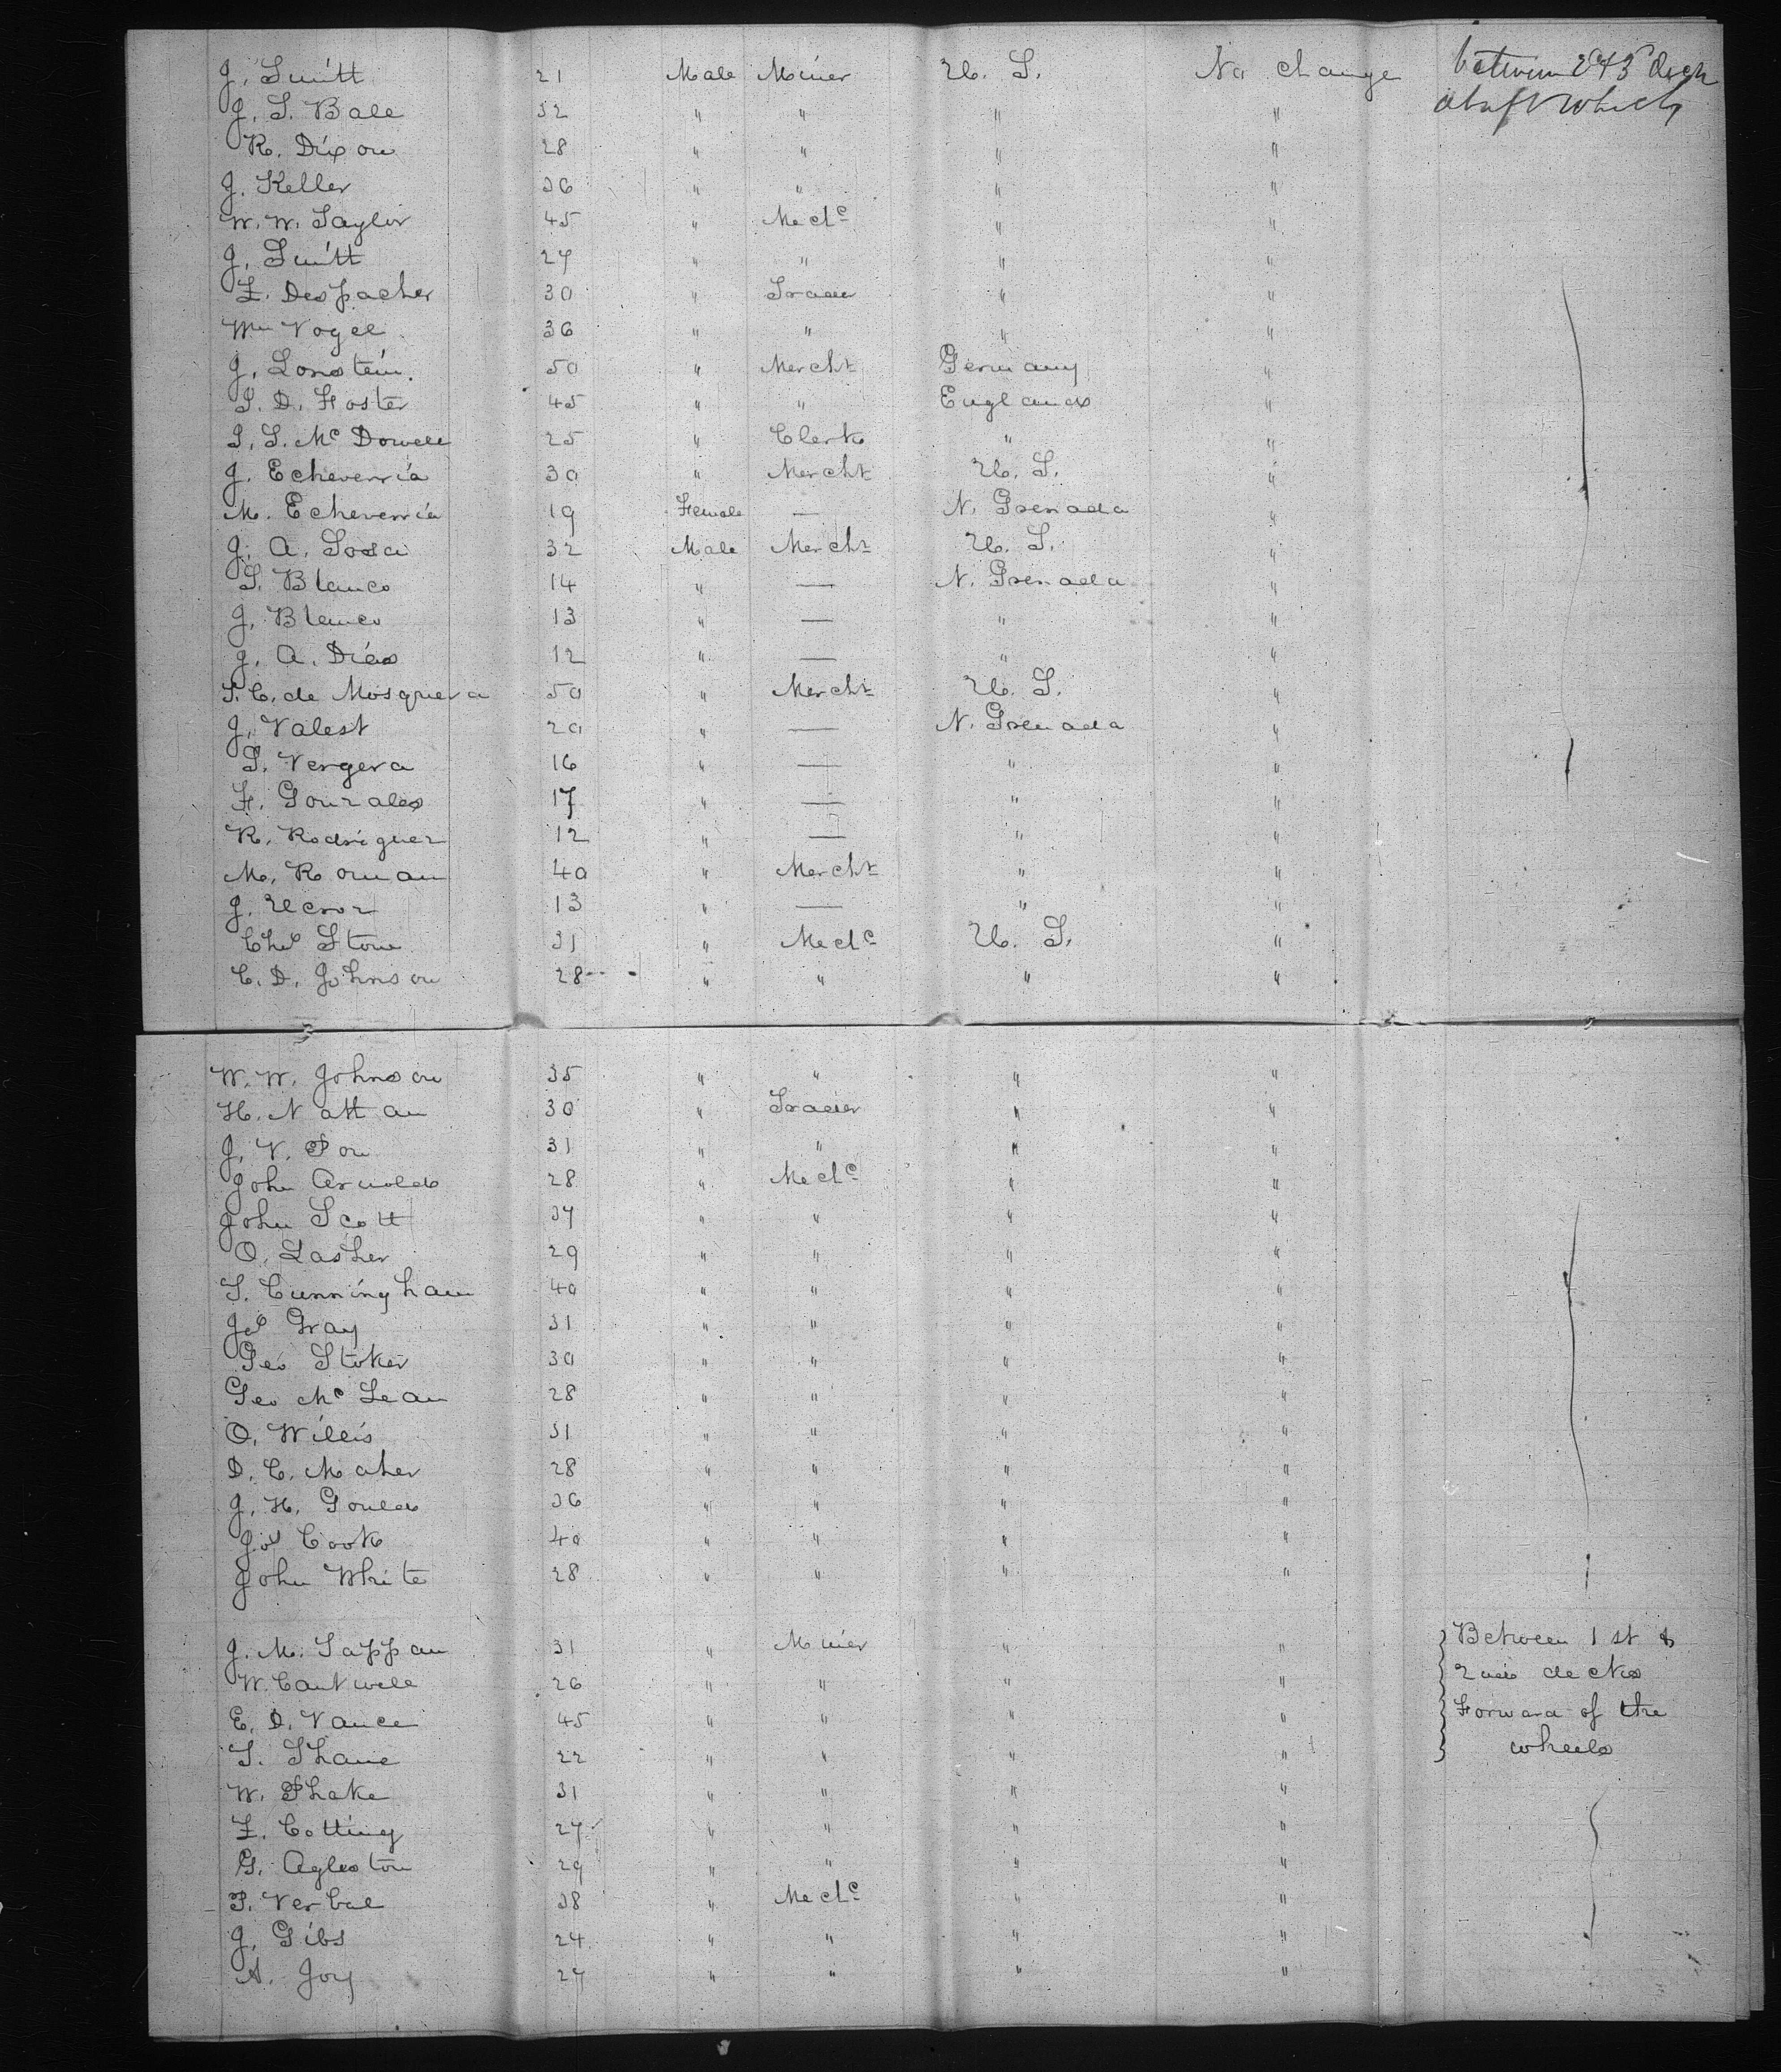 J. Smith 21 Male Miner U. S. No change between 2 & 3 deck
J. S. Bale 32 " " " " abaft wheels
R. Dixon 28 " " " "
J. Keller 36 " " " "
W. W. Taylor 45 " Mechc " "
J. Smith 27 " " " "
L. Despacher 30 " Trader " "
Wm Vogel 36 " " " "
J. Lonstein 50 " Mercht Germany "
S. D. Foster 45 " " England "
S. S. Mc Dowell 25 " Clerk " "
J. Echeverria 30 " Mercht U. S. "
M. Echeverria 19 Female — N. Grenada "
J. A. Sosa 32 Male Mercht U. S. "
S. Blanco 14 " — N. Grenada "
J. Blanco 13 " — " "
J. A. Dias 12 " — " "
T. C. de Mosquera 50 " Mercht U. S. "
J. Valest 20 " — N. Grenada "
S. Vergera 16 " — " "
F. Gonzales 17 " — " "
R. Rodriguez 12 " — " "
M. Roman 40 " Mercht " "
J. 13 " — " "
Chs Stone 31 " Mechc U. S. "
C. D. Johnson 28 " " " "
W. W. Johnson 35 " " " "
H. Nathan 30 " Trader " "
J. V. Pon 31 " " " "
John Arnold 28 " Mechc " "
John Scott 37 " " " "
O. Lasher 29 " " " "
T. Cunningham 40 " " " "
Js Gray 31 " " " "
Geo Stoker 30 " " " "
Geo Mc Lean 28 " " " "
O. Willis 31 " " " "
D. C. Maher 28 " " " "
J. H. Gould 36 " " " "
Jos Cook 40 " " " "
John White 28 " " " "
J. M. Tappan 31 " Miner " " Between 1st &
W. Cantwell 26 " " " " 2nd decks
E. D. Vance 45 " " " " Forward of the
T. Shane 22 " " " " wheels
W. Phake 31 " " " "
L. Cotting 27 " " " "
G. Agleston 29 " " " "
P. Verbal 38 " Mechc " "
J. Gibs 24 " " " "
A. Joy 27 " " " "